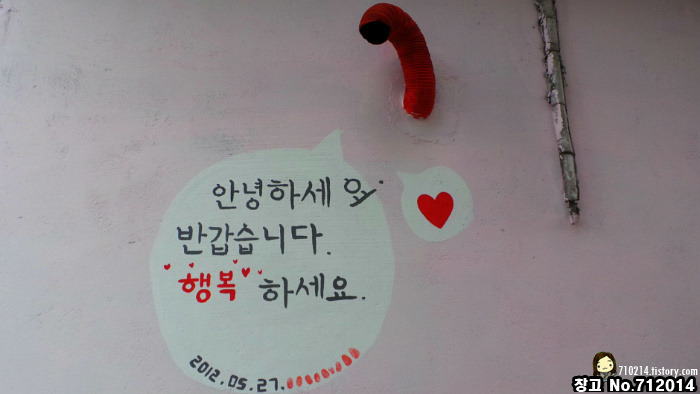 안녕하세요.
반갑습니다.
행복하세요.
2012.05.27.
710214.tistory.com
창고 No.712014